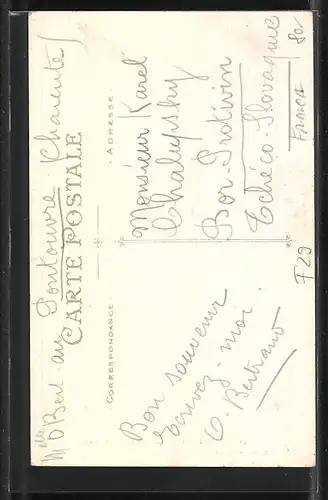 Mlle O Bert au Pontouvre Charente
CARTE POSTALE
CORRESPONDANCE
ADRESSE
Bon souvenir
Ecrivez-moi
O. Bertrand
Monsieur Karel
Chalupsky
Bor-Protivin
Tchéco-Slovaquie
France
80
F29